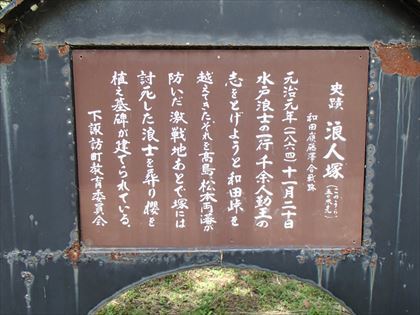 史蹟 浪人塚
和田嶺藤澤合戦跡
元治元年(一八六四)十一月二十日
水戸浪士の一行千余人勤王の
志をとげようと和田峠を
越えてきたそれを高島、松本両藩が
防いだ激戦地あとで塚には
討死した浪士を葬り櫻を
植え墓碑が建てられている。
下諏訪町教育委員会